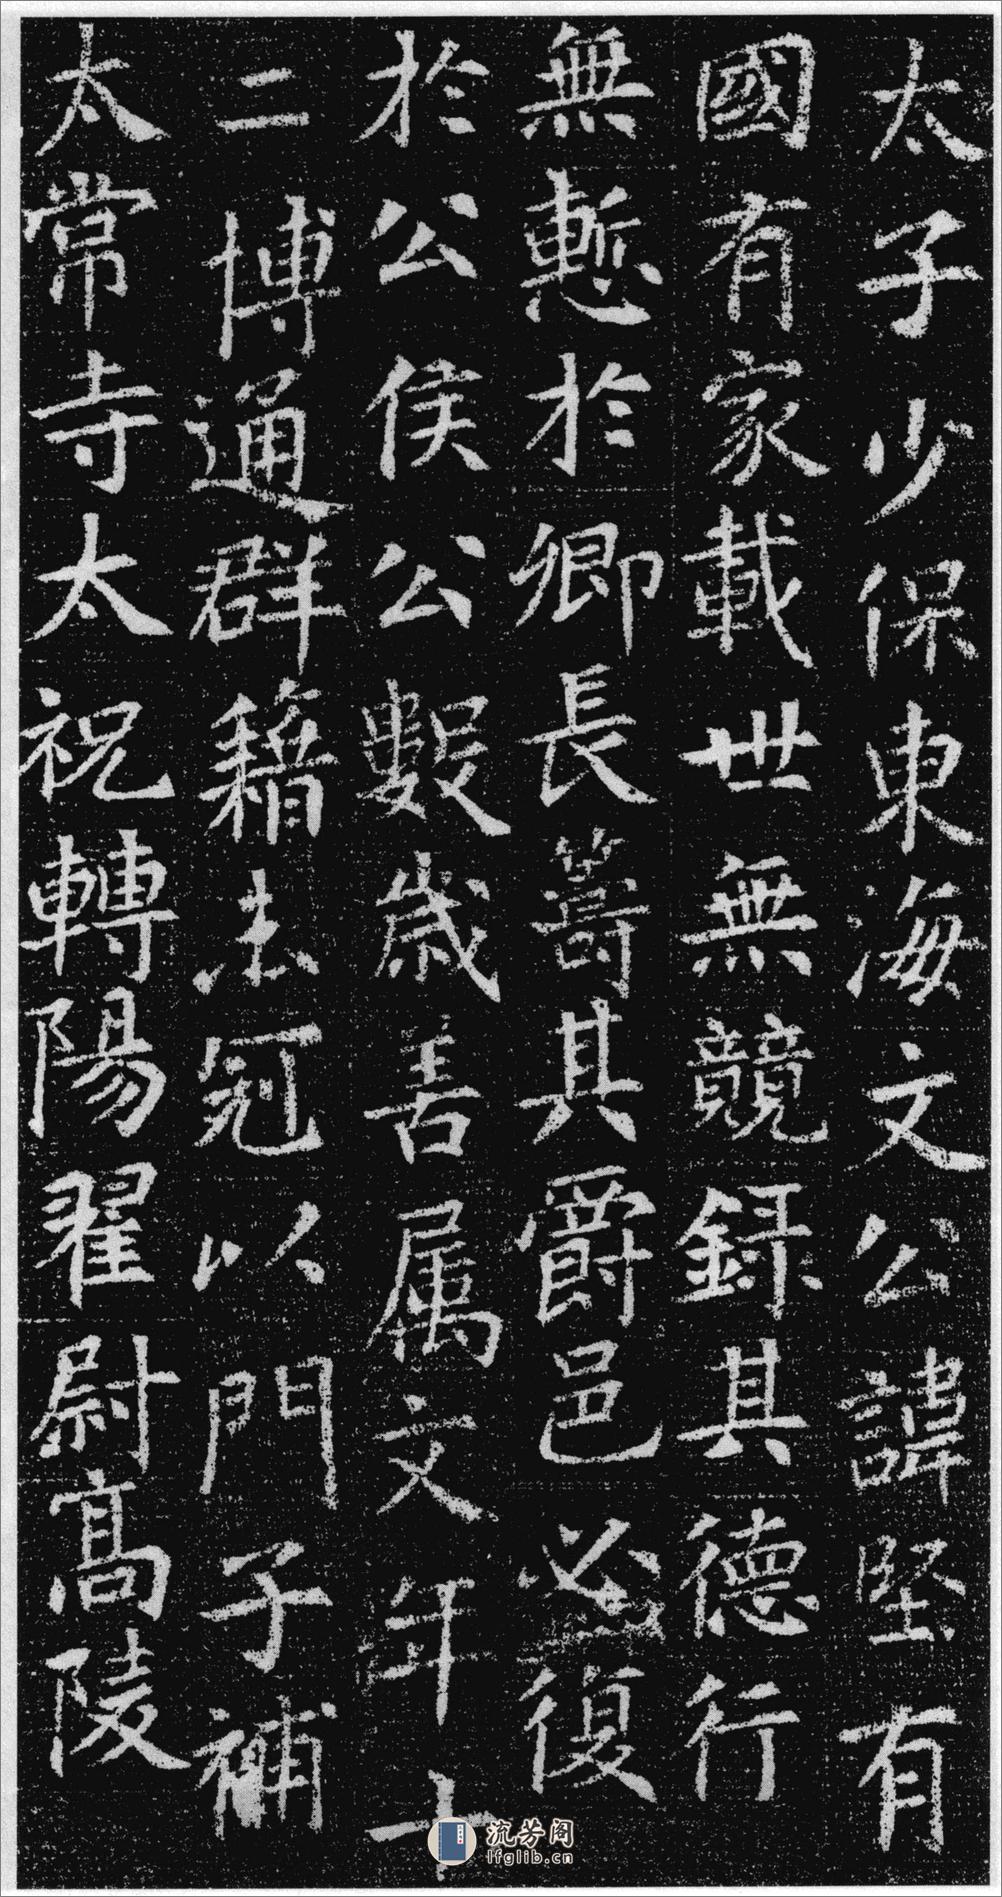 太子少保東海文公諱堅有
國有家載世無競錄其德行
無慙於卿長籌其爵邑必復
於公侯公數歲善属文年十
二博通群籍未冠以門子補
太常寺太祝轉陽翟尉高陵
流芳阁
lfglib.cn